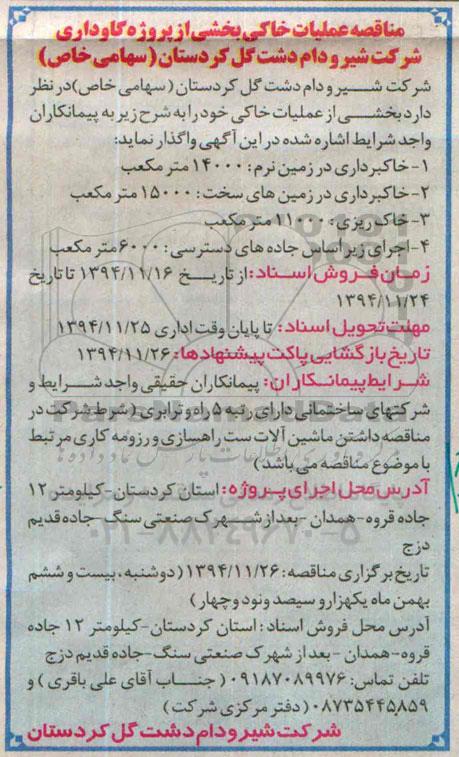 مناقصه عملیات خاکی بخشی از پروژه گاوداری
شرکت شیر و دام دشت گل کردستان (سهامی خاص)
شرکت شیر و دام دشت گل کردستان (سهامی خاص) در نظر
دارد بخشی از عملیات خاکی خود را به شرح زیر به پیمانکاران
واجد شرایط اشاره شده در این آگهی واگذار نماید:
۱- خاکبرداری در زمین نرم: ۱۴۰۰۰ متر مکعب
۲- خاکبرداری در زمین های سخت: ۱۵۰۰۰ متر مکعب
۳- خاک ریزی: ۱۱۰۰۰ متر مکعب
۴- اجرای زیر اساس جاده های دسترسی: ۶۰۰۰ متر مکعب
زمان فروش اسناد: از تاریخ ۱۳۹۴/۱۱/۱۶ تا تاریخ
۱۳۹۴/۱۱/۲۴
مهلت تحویل اسناد: تا پایان وقت اداری ۱۳۹۴/۱۱/۲۵
تاریخ بازگشایی پاکت پیشنهادها: ۱۳۹۴/۱۱/۲۶
شرایط پیمانکاران: پیمانکاران حقیقی واجد شرایط و
شرکتهای ساختمانی دارای رتبه ۵ راه و ترابری (شرط شرکت در
مناقصه داشتن ماشین آلات ست راهسازی و رزومه کاری مرتبط
با موضوع مناقصه می باشد)
آدرس محل اجرای پروژه: استان کردستان - کیلومتر ۱۲
جاده قروه - همدان - بعد از شهرک صنعتی سنگ - جاده قدیم
دزج
تاریخ برگزاری مناقصه: ۱۳۹۴/۱۱/۲۶ (دوشنبه، بیست و ششم
بهمن ماه یکهزار و سیصد و نود و چهار)
آدرس محل فروش اسناد: استان کردستان - کیلومتر ۱۲ جاده
قروه - همدان - بعد از شهرک صنعتی سنگ - جاده قدیم دزج
تلفن تماس: ۰۹۱۸۷۰۸۹۹۷۶ (جناب آقای علی باقری) و
۰۸۷۳۵۴۴۵۸۵۹ (دفتر مرکزی شرکت)
شرکت شیر و دام دشت گل کردستان
۰۲۱-۸۸۳۴۹۶۷۰-۵